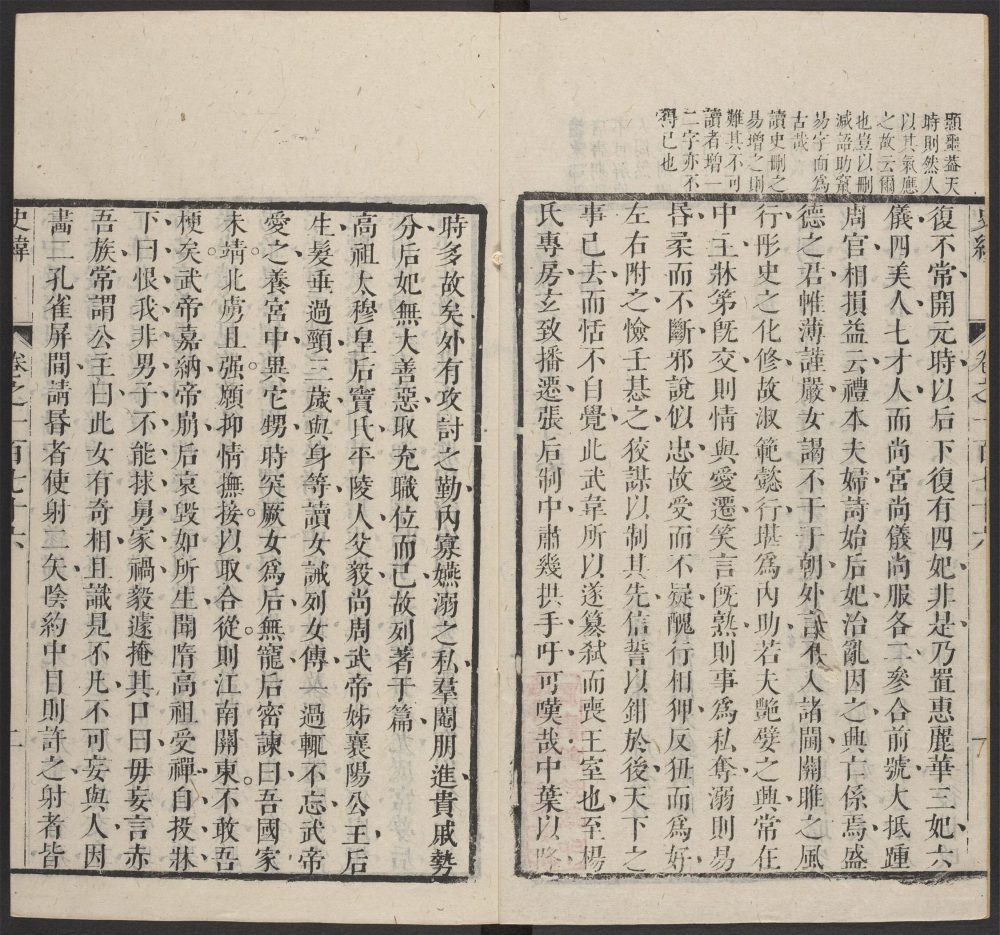 史緯　卷之一百七十六
顯靈葢天
時則然人
以其氣應
之故云爾
也豈以刪
減語助竄
易字面爲
古哉
讀史刪之
易增之則
難其不可
讀者增一
二字亦不
得已也
復不常開元時以后下復有四妃非是乃置惠麗華三妃六
儀四美人七才人而尚宮尚儀尚服各二參合前號大抵踵
周官相損益云禮本夫婦詩始后妃治亂因之興亡係焉盛
德之君帷薄謹嚴女謁不干于朝外言不入諸閫關雎之風
行彤史之化修故淑範懿行堪爲內助若夫艷嬖之興常在
中主牀笫旣交則情與愛遷笑言旣熟則事爲私奪溺則易
昏柔而不斷邪說似忠故受而不疑醜行相狎反狃而爲好
左右附之憸壬惎之狡謀以制其先信誓以鉗於後天下之
事已去而恬不自覺此武韋所以遂簒弑而喪王室也至楊
氏專房玄致播遷張后制中肅幾拱手吁可嘆哉中葉以降
時多故矣外有攻討之勤內寡嬿溺之私羣閹朋進貴戚勢
分后妃無大善惡取充職位而已故列著于篇
高祖太穆皇后竇氏平陵人父毅尚周武帝姊襄陽公主后
生髮垂過頸三歲與身等讀女誡列女傳一過輒不忘武帝
愛之養宮中異它甥時突厥女爲后無寵后密諫曰吾國家
未靖北虜且强願抑情撫接以取合從則江南關東不敢吾
梗矣武帝嘉納帝崩后哀毀如所生聞隋高祖受禪自投牀
下曰恨我非男子不能捄舅家禍毅遽掩其口曰毋妄言赤
吾族常謂公主曰此女有奇相且識見不凡不可妄與人因
畫二孔雀屏間請昬者使射二矢陰約中目則許之射者皆
史緯　卷之一百七十六　二